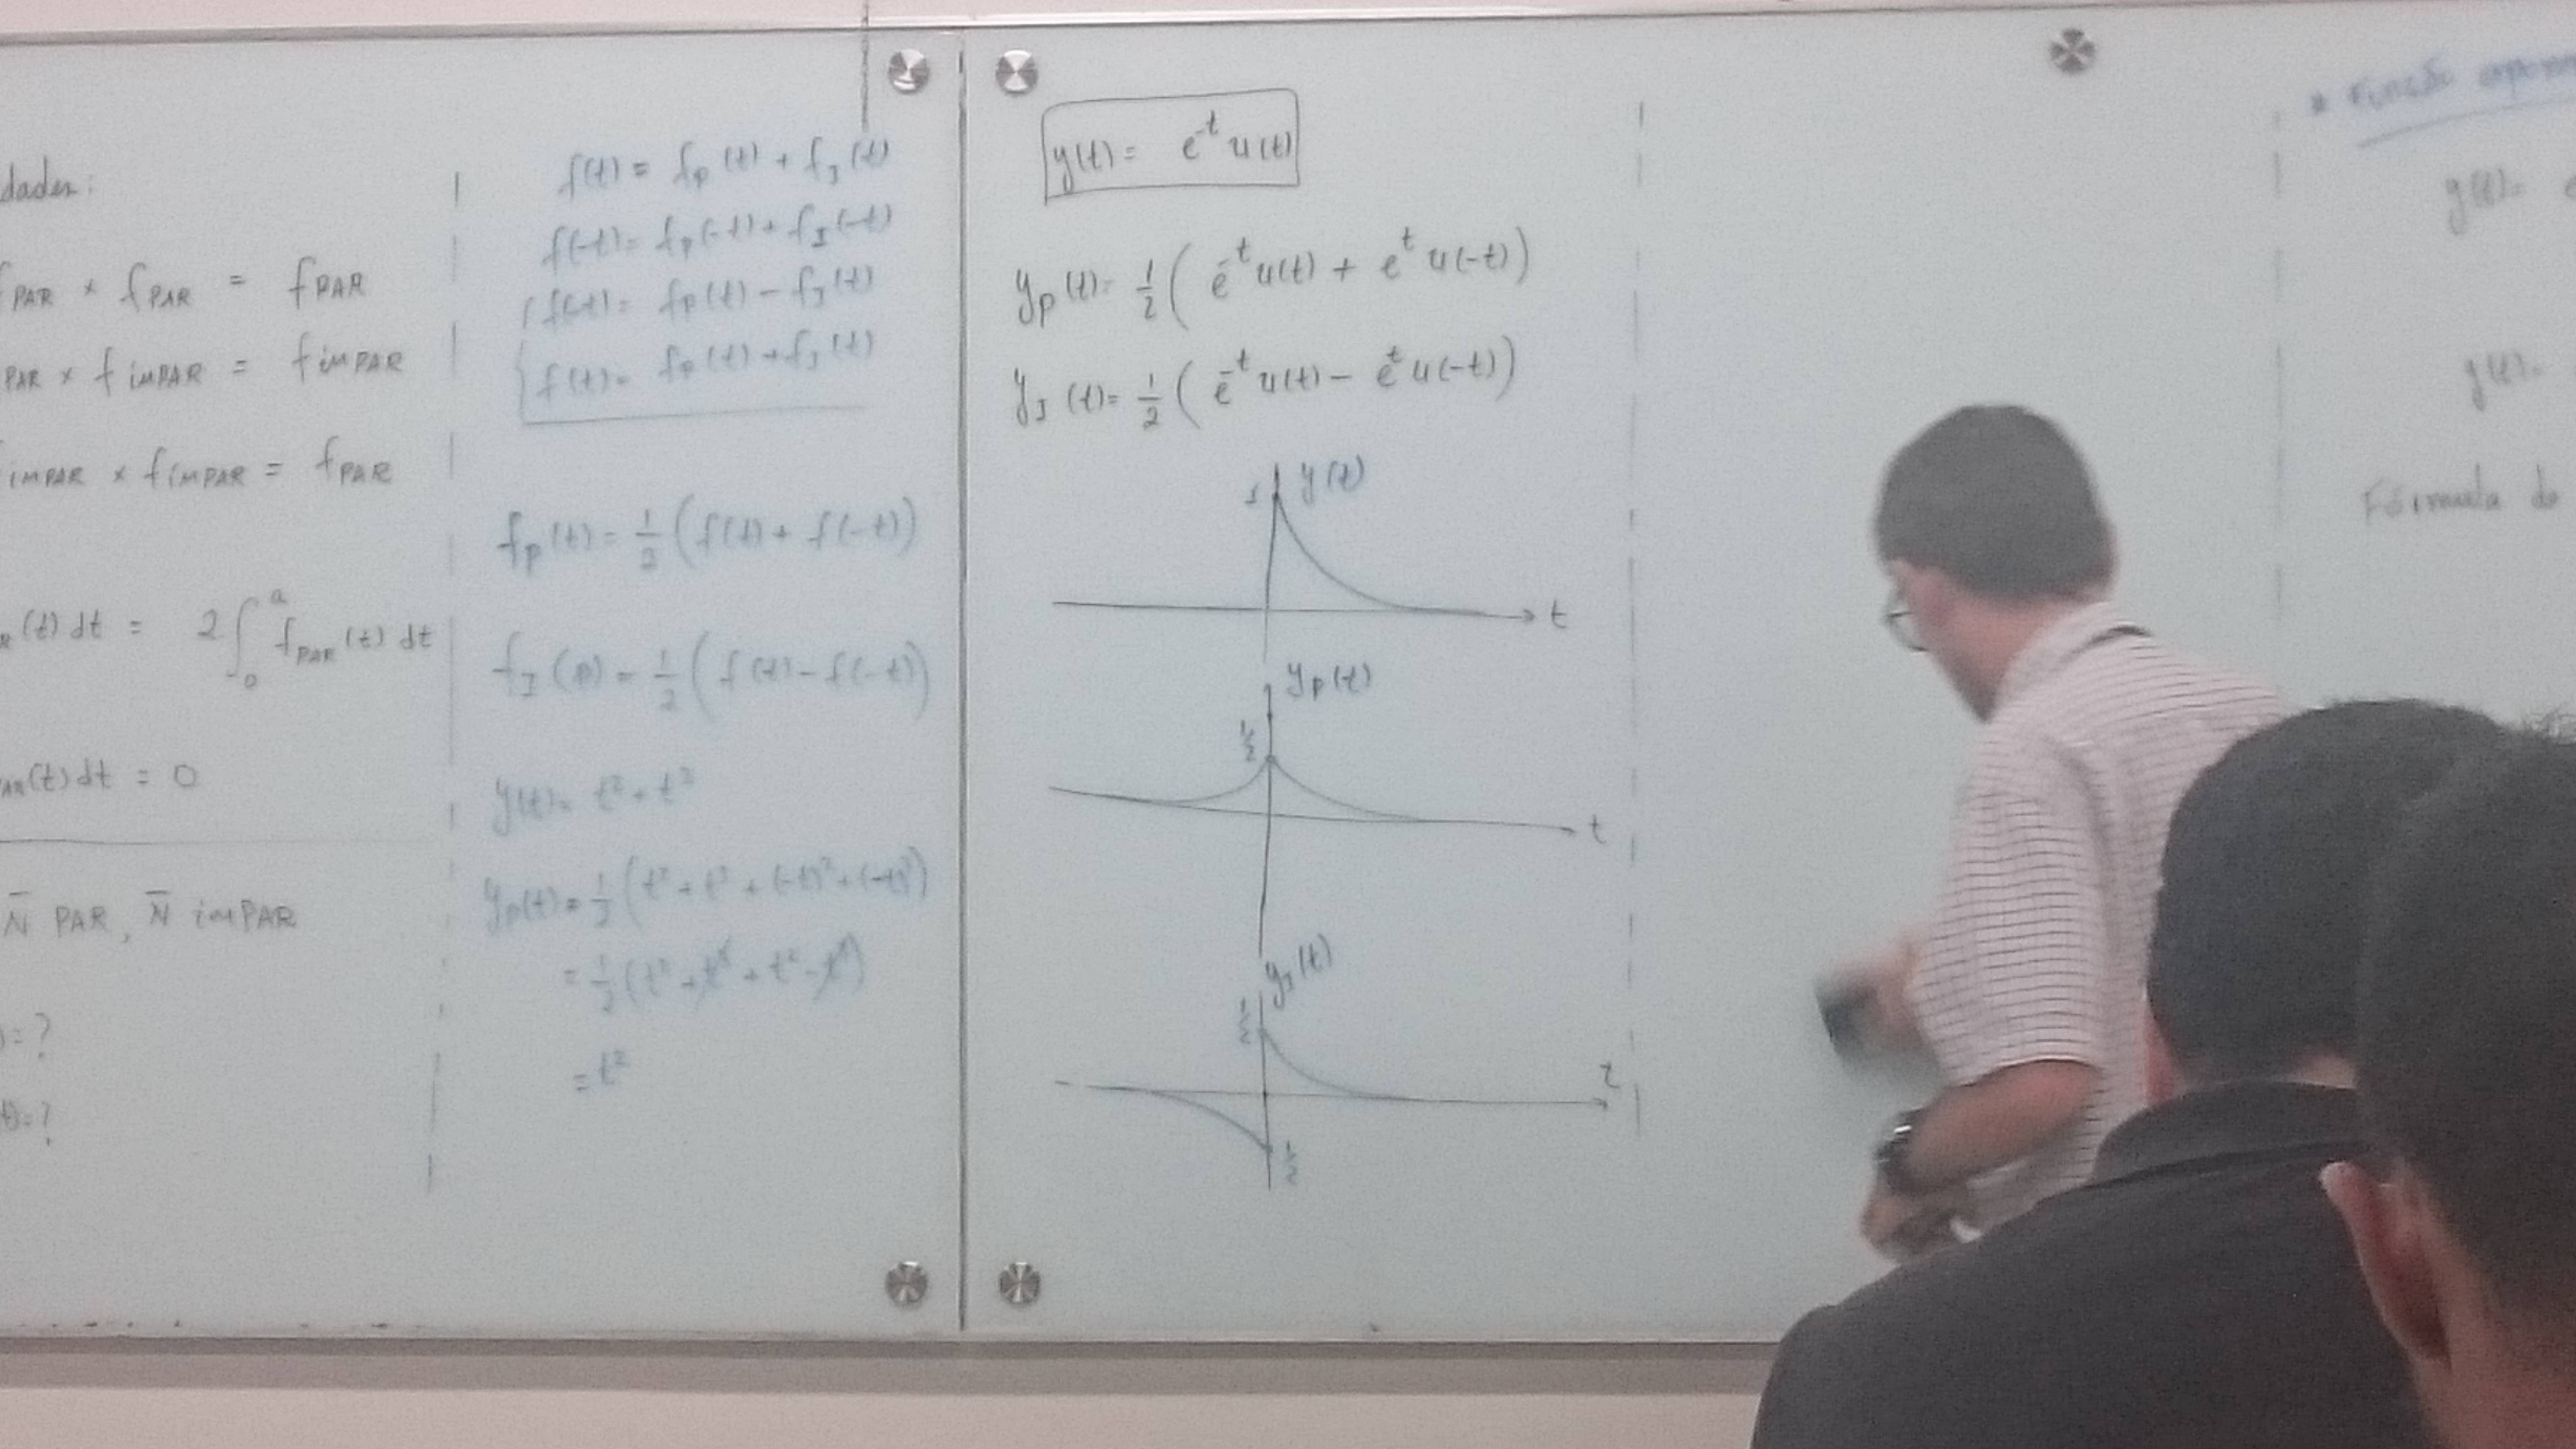 dades:
fPAR × fPAR = fPAR
PAR × fimPAR = fimPAR
imPAR × fimPAR = fPAR
(t) dt = 2∫₀ᵃ fPAR(t) dt
(t) dt = 0
N̄ PAR, N̄ imPAR
= ?
= ?
f(t) = fP(t) + fI(t)
f(-t) = fP(-t) + fI(-t)
f(-t) = fP(t) - fI(t)
f(t) = fP(t) + fI(t)
fP(t) = 1/2 (f(t) + f(-t))
= 1/2 (f(t) - f(-t))
y(t) = t² + t³
yP(t) = 1/2 (t² + t³ + (-t)² + (-t)³)
= 1/2 (t² + t³ + t² - t³)
= t²
y(t) = e⁻ᵗ u(t)
yP(t) = 1/2 (e⁻ᵗ u(t) + eᵗ u(-t))
yI(t) = 1/2 (e⁻ᵗ u(t) - eᵗ u(-t))
1 y(t)
t
yP(t)
1/2
t
yI(t)
1/2
t
1/2
* Função
y(t) =
y(t) =
Fórmula de